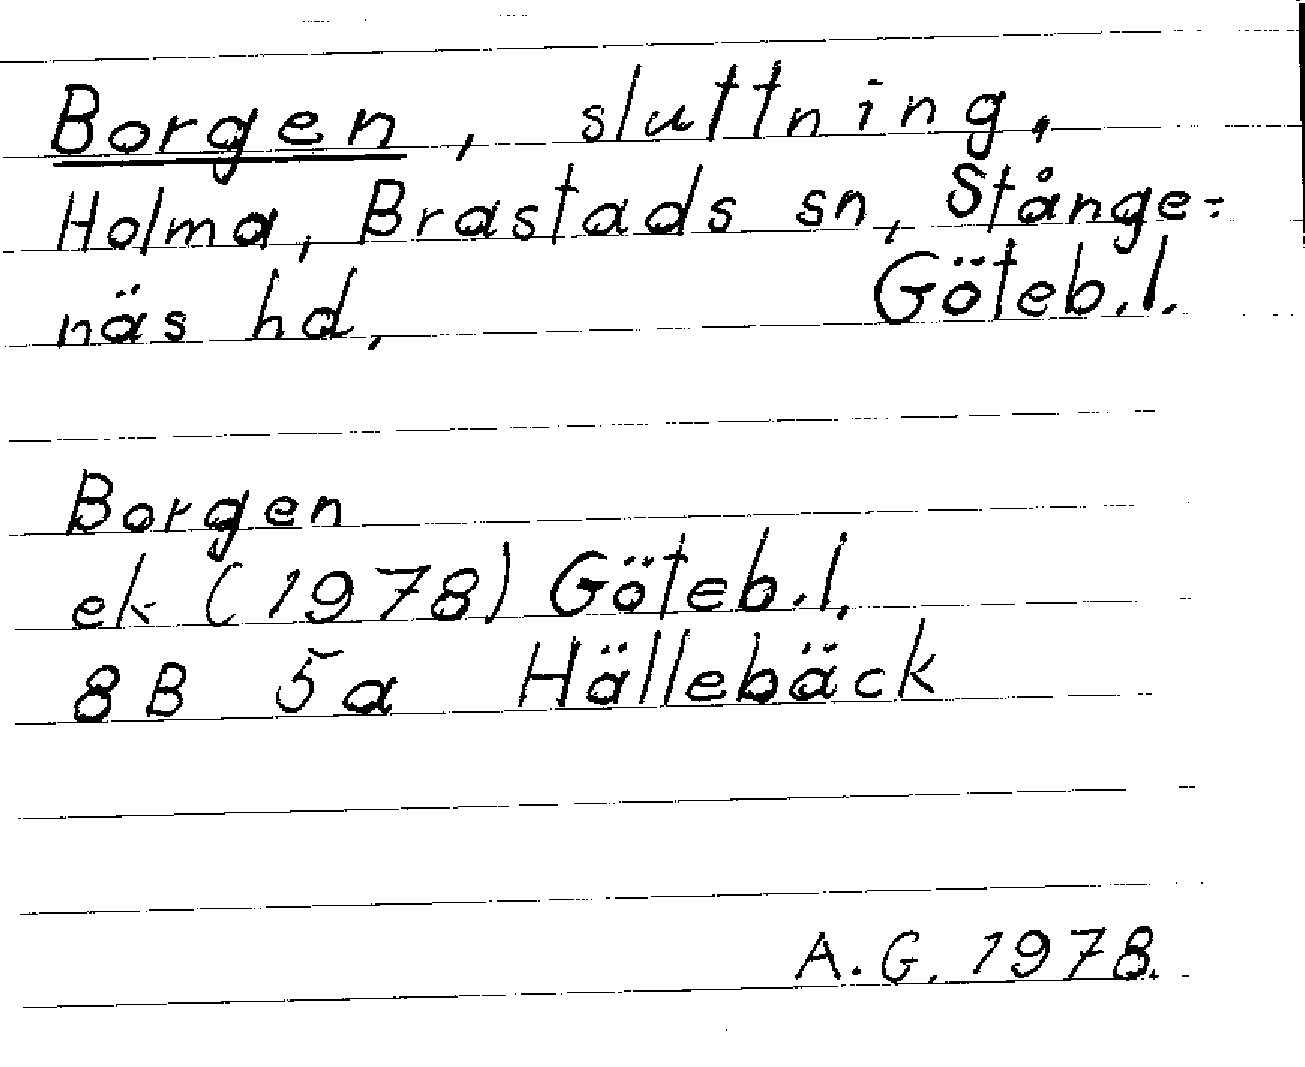 Borgen, sluttning,
Holma, Brastads sn, Stånge-
näs hd, Göteb.l.
Borgen
ek (1978) Göteb.l.
8B 5a Hällebäck
A.G. 1978.